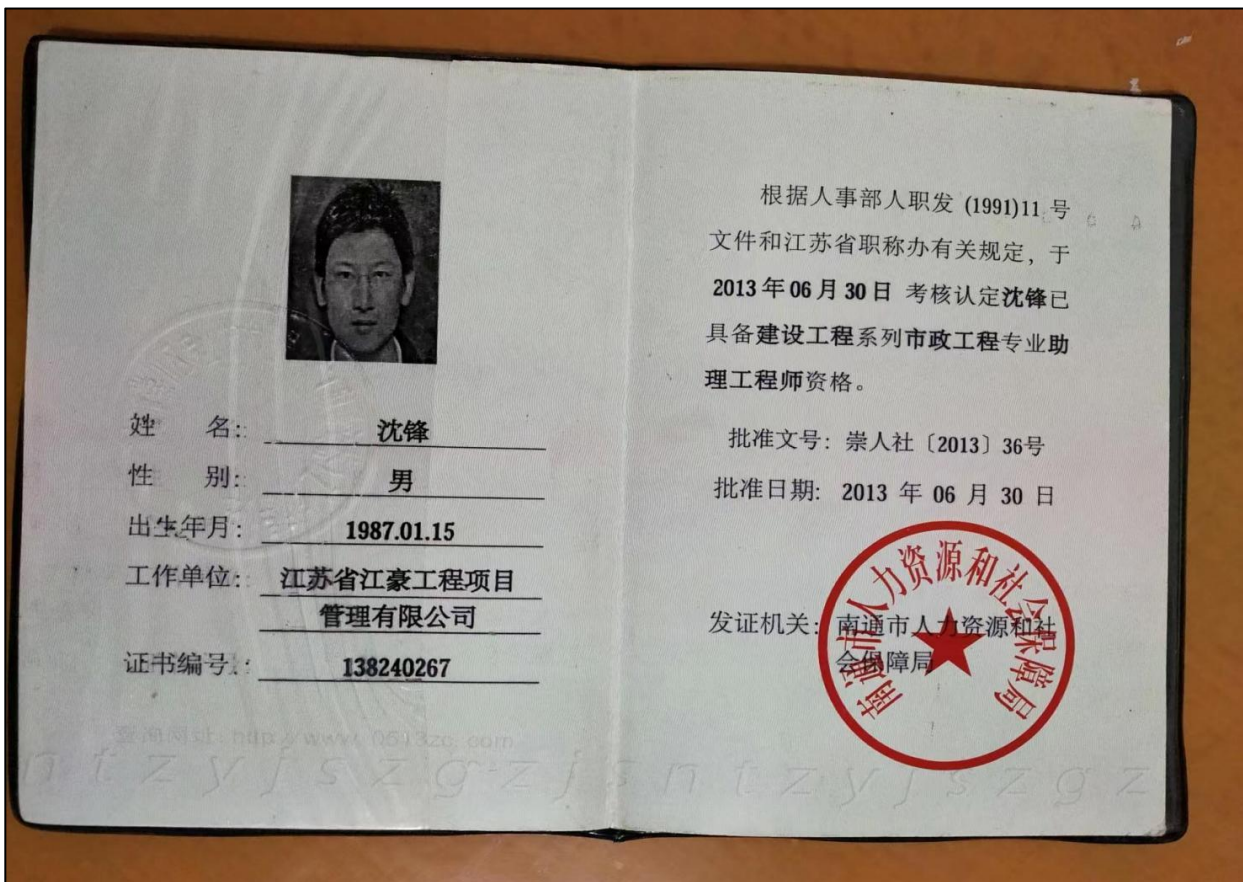 姓 名: 沈锋
性 别: 男
出生年月: 1987.01.15
工作单位: 江苏省江豪工程项目
管理有限公司
证书编号: 138240267
查询网址:http://www.0513zc.com
ntzyjszgzjsntzyjszgz
根据人事部人职发 (1991)11 号
文件和江苏省职称办有关规定, 于
2013年06月30日 考核认定沈锋已
具备建设工程系列市政工程专业助
理工程师资格。
批准文号: 崇人社〔2013〕36号
批准日期: 2013 年 06 月 30 日
发证机关: 南通市人力资源和社
会保障局
南通市人力资源和社会保障局